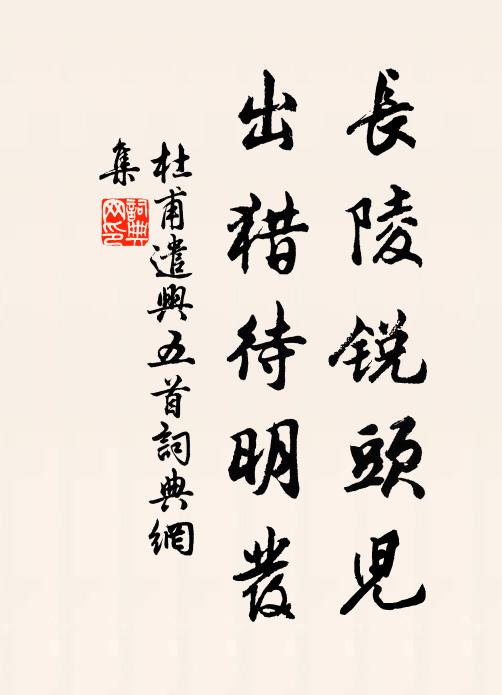 長陵锐頭兒
出猎待明發
杜甫遣興五首詞典網
集
詞典
网印